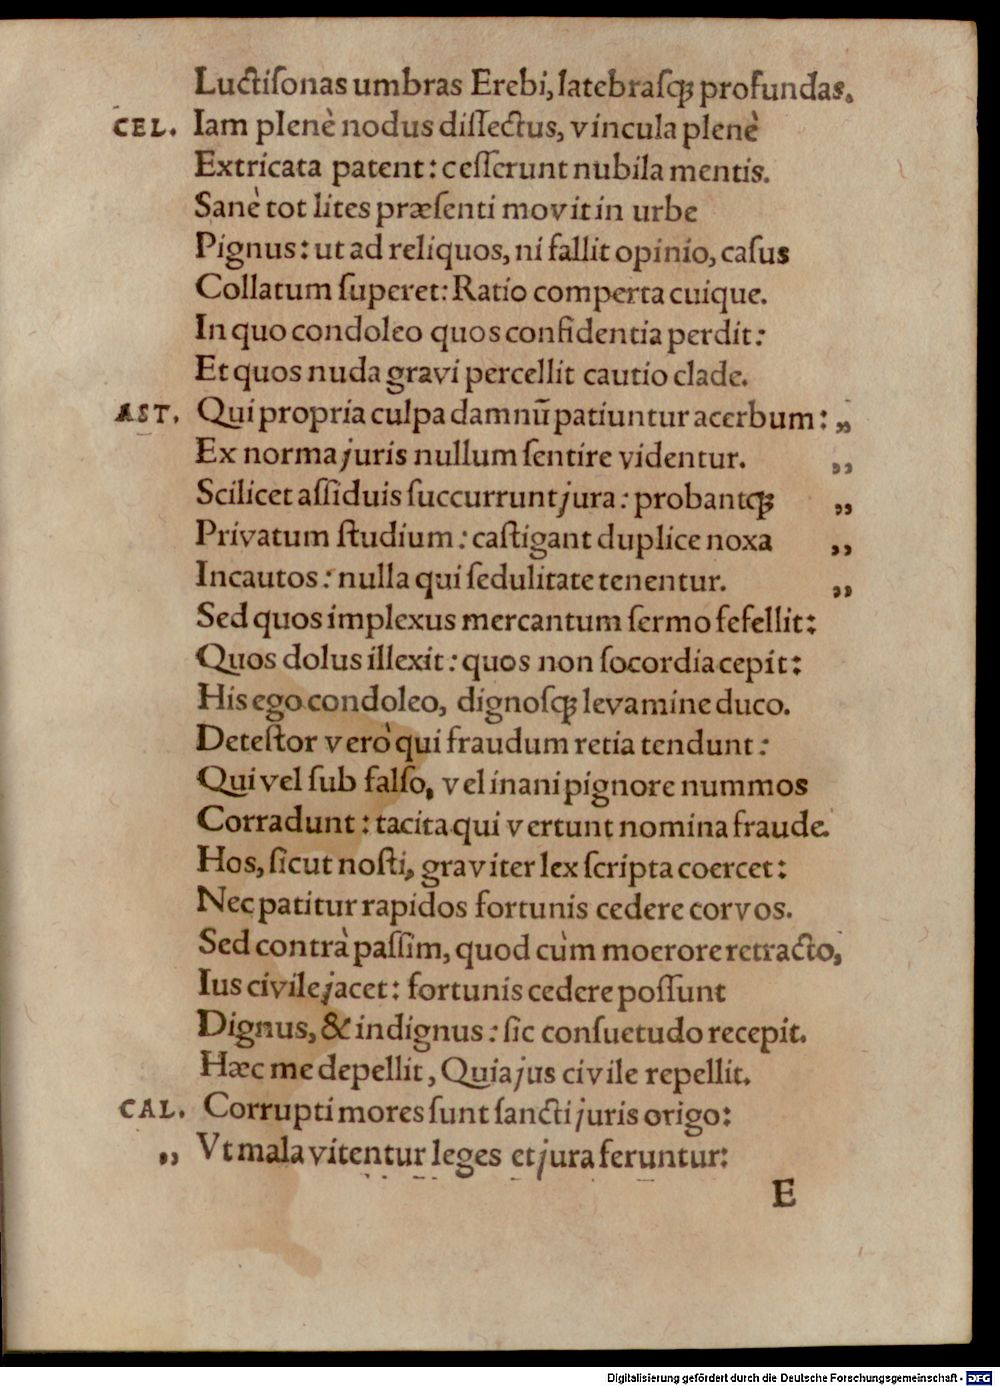 Luctiſonas umbras Erebi, latebraſq́ꝫ profundas.
CEL. Iam plenè nodus diſſectus, vincula plenè
Extricata patent: ceſſerunt nubila mentis.
Sanè tot lites præſenti movit in urbe
Pignus: ut ad reliquos, ni fallit opinio, caſus
Collatum ſuperet: Ratio comperta cuique.
In quo condoleo quos confidentia perdit:
Et quos nuda gravi percellit cautio clade.
AST. Qui propria culpa damnũ patiuntur acerbum: „
Ex norma juris nullum ſentire videntur. „
Scilicet aſſiduis ſuccurrunt jura: probantq́ꝫ „
Privatum ſtudium: caſtigant duplice noxa „
Incautos: nulla qui ſedulitate tenentur. „
Sed quos implexus mercantum ſermo fefellit:
Quos dolus illexit: quos non ſocordia cepit:
His ego condoleo, dignoſq́ꝫ levamine duco.
Deteſtor verò qui fraudum retia tendunt:
Qui vel ſub falſo, vel inani pignore nummos
Corradunt: tacita qui vertunt nomina fraude.
Hos, ſicut noſti, graviter lex ſcripta coercet:
Nec patitur rapidos fortunis cedere corvos.
Sed contrà paſſim, quod cùm moerore retracto,
Ius civile jacet: fortunis cedere poſſunt
Dignus, & indignus: ſic conſuetudo recepit.
Hæc me depellit, Quia jus civile repellit.
CAL. Corrupti mores ſunt ſancti juris origo:
„ Vt mala vitentur leges et jura feruntur:
E
Digitalisierung gefördert durch die Deutsche Forschungsgemeinschaft - DFG